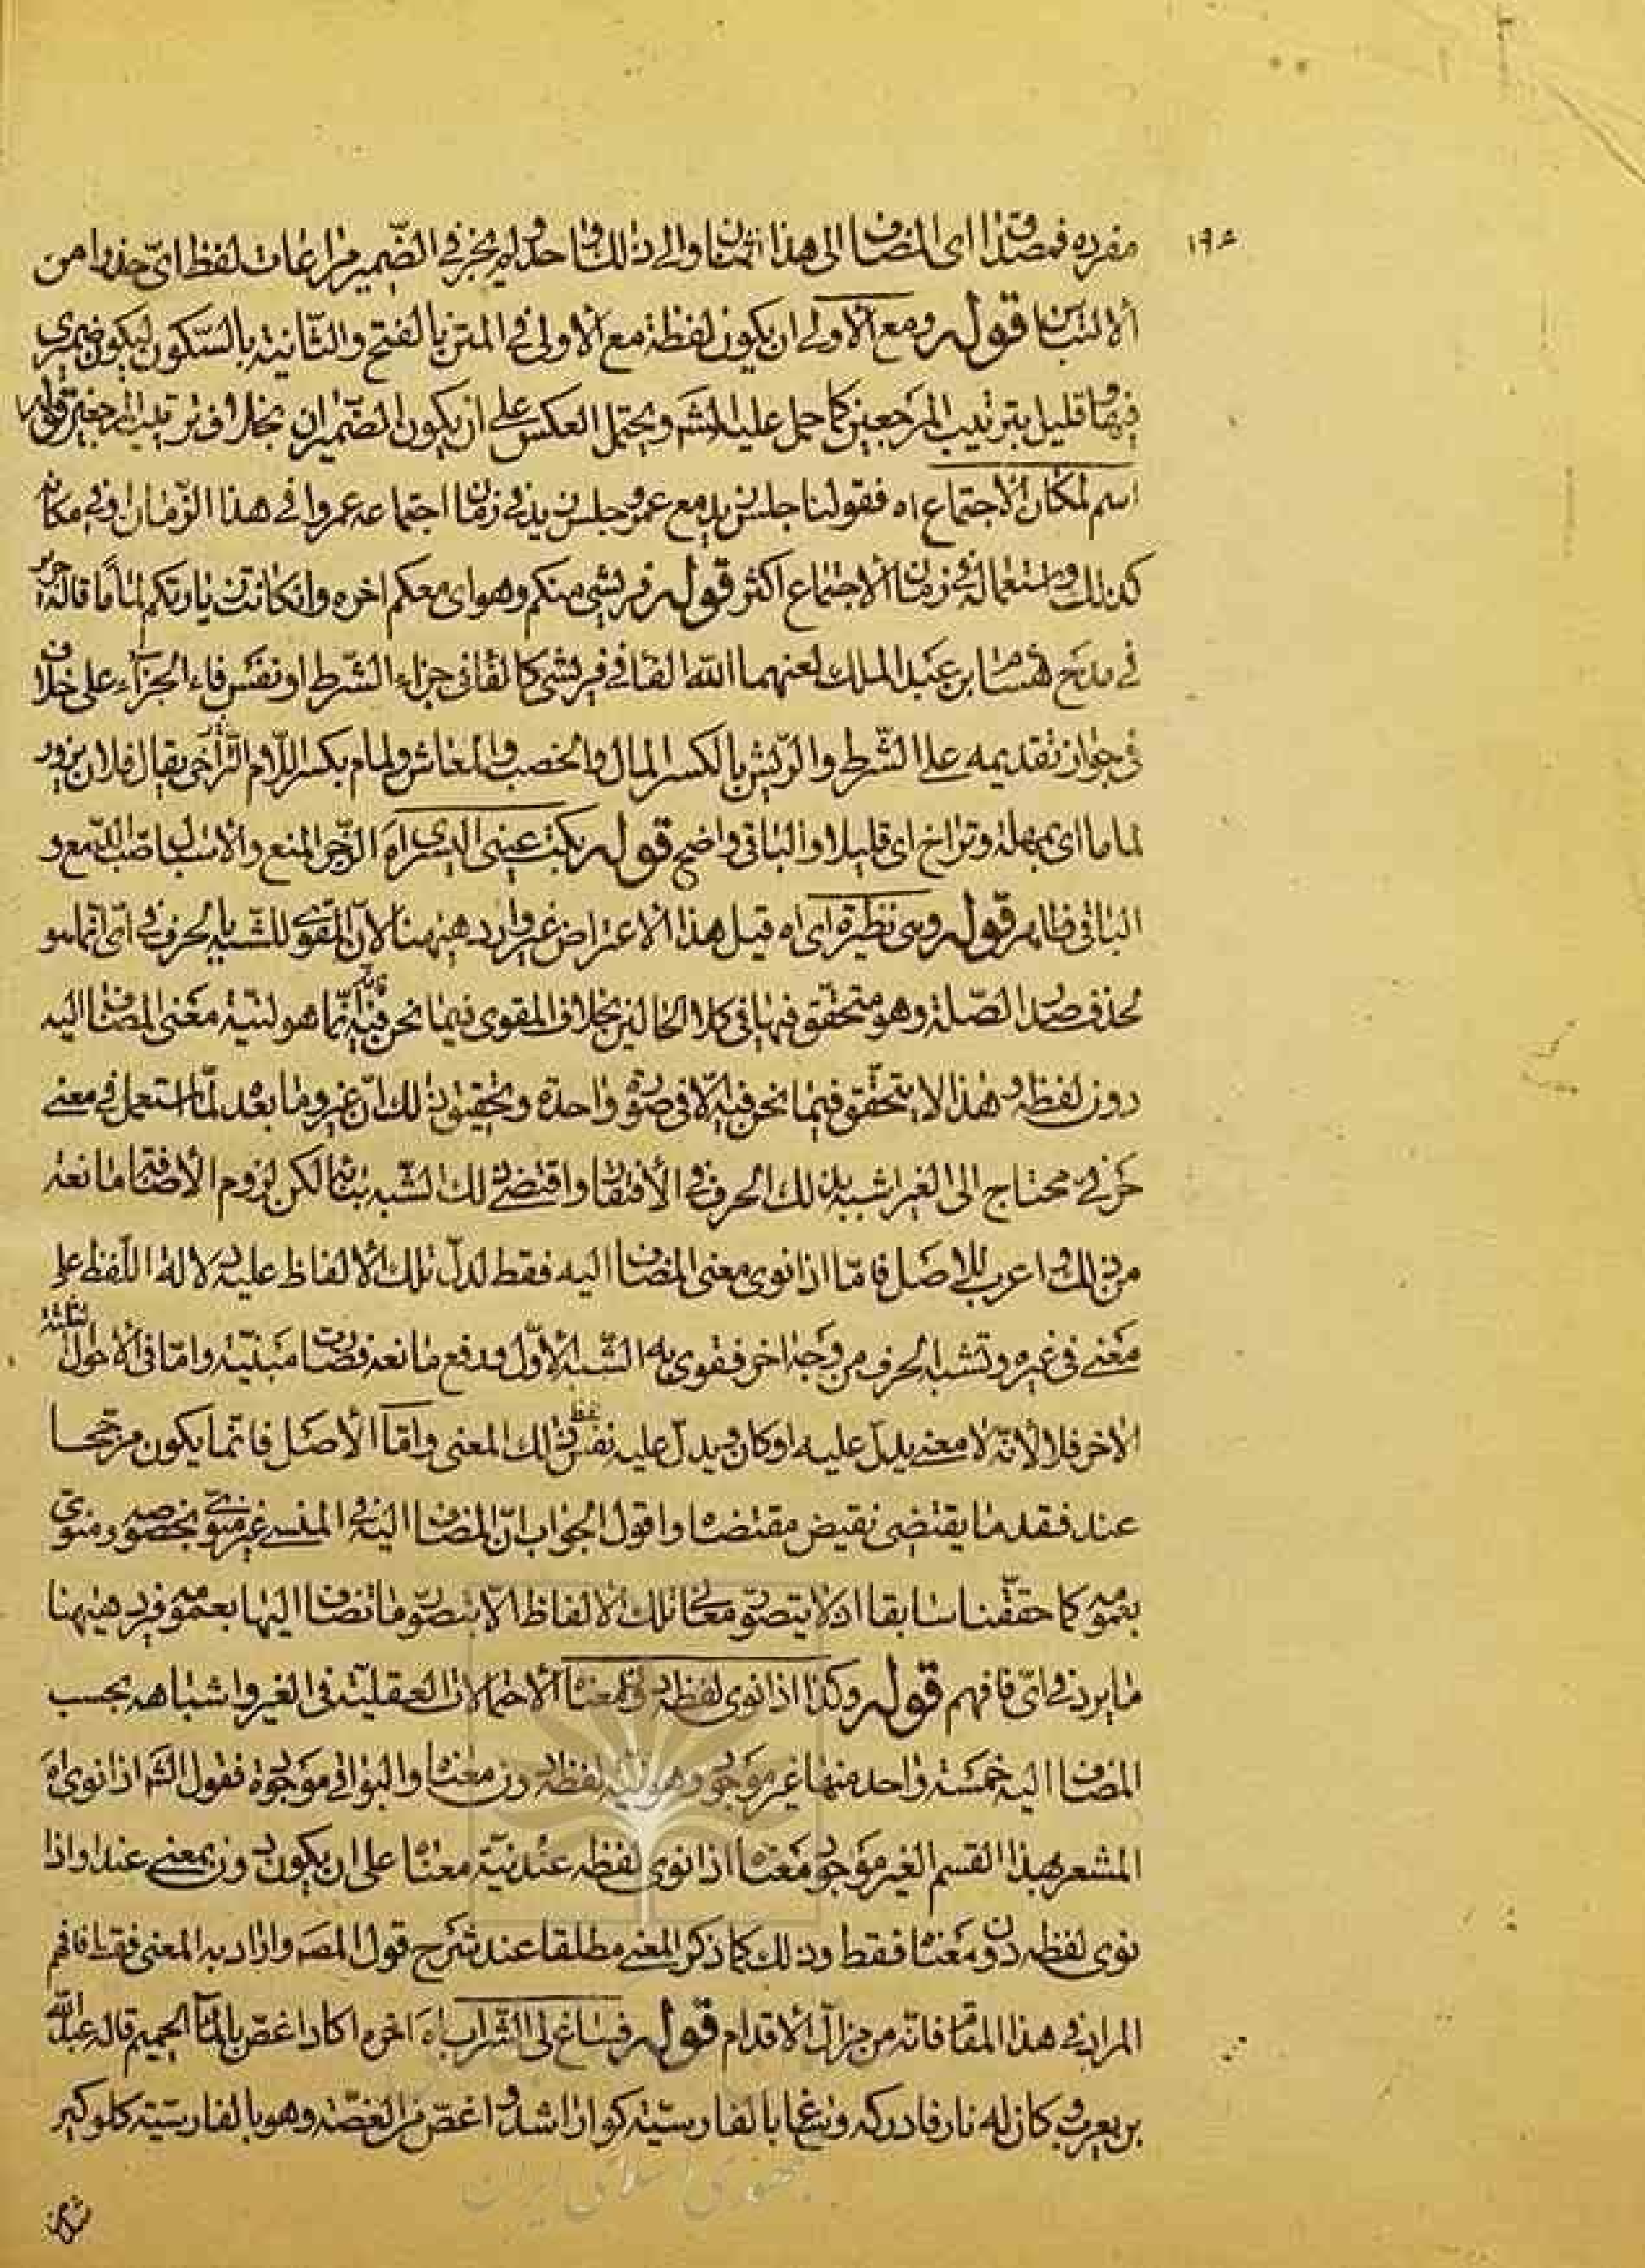 ۱۹۶
مفرده فمصداق ای المضاف الی هذا اثنان والی ذلک واحد وله یخبر فی الضمیر مراعات لفظ ای حذرا من
الالتباس قوله ومع الاولی ان یکون لفظة مع الاولی فی المتن بالفتح والثانیة بالسکون لیکون ضمیری
فیها وقلیل بترتیب المرجعین کما حمل علیه الشم ویحتمل العکس علی ان یکون الضمیران بخلاف ترتیب المرجعین قوله
اسم لمکان الاجتماع اه فقولنا جلس زید مع عمرو جلس زید فی زمان اجتماعه عمروا فی هذا الزمان او فی مکان
کذلک واستعماله فی زمان الاجتماع اکثر قوله فریشی منکم وهوای معکم اخره وان کانت زیارتکم لماما قاله جریر
فی مدح هشام بن عبد الملک لعنهما الله الفا فی فریشی کالفا فی جزاء الشرط او نفس فاء الجزاء علی خلاف
فی جواز تقدیمه علی الشرط والریش بالکسر المال والخصب والمعاش ولمام بکسر اللام التراخی یقال فلان یزور
لماما ای بمهلة وتراخ ای قلیلا والباقی واضح قوله بکت عینی الیسری اه الزجر المنع والاسبال صب الدمع و
الباقی ظاهر قوله وهی نظیرة ای اه قیل هذا الاعتراض غیر وارد هیهنا لان المقوی للشبه بالحرف فی ای انما هو
حذف صدر الصلة وهو متحقق فیها فی کلا الحالین بخلاف المقوی فیما نحن فیه فانه انما هو لنیة معنی المضاف الیه
دون لفظه وهذا لا یتحقق فیما نحن فیه الا فی صورة واحدة وتحقیق ذلک ان غیر وما بعد لما استعمل فی معنی
حرفی محتاج الی الغیر اشبه بذلک الحرف فی الافتقار واقتضی ذلک الشبه بنائها لکن لزوم الاضافة مانعه
من ذلک واعرب للاصل فاما اذا نوی معنی المضاف الیه فقط لدل تلک الالفاظ علیه دلالة اللفظ علی
معنی فی غیره وتشبه الحرف من وجه اخر فقوی به الشبه الاول ودفع مانعه فصارت مبنیة واما فی الاحوال الثلثة
الاخر فلا لانه لا معنی یدل علیه او کان ویدل علیه نفس لفظ ذلک المعنی واما الاصل فانما یکون مرجحا
عند فقد ما یقتضی نقیض مقتضاه واقول الجواب ان المضاف الیه فی المنسی غیر منوی بخصوصه ومنوی
بعمومه کما حققنا سابقا اذ لا یتصور معانی تلک الالفاظ الا بتصور ما تضاف الیها بعمومه فیرد هیهنا
ما یرد فی ای فافهم قوله وکذا اذا نوی لفظه دون معناه الاحتمالات العقلیة فی الغیر واشباهه بحسب
المضاف الیه خمسة واحد منها غیر موجود وهو نیة لفظه دون معناه والبواقی موجودة فقول الشم اذا نوی اه
المشعر بهذا القسم الغیر موجود معناه اذا نوی لفظه عند نیة معناه علی ان یکون دون بمعنی عند او اذا
نوی لفظه دون معناه فقط وذلک کما ذکر المعنی مطلقا عند شرح قول المصه واراد به المعنی فقط فافهم
المراد فی هذا المقام فانه من مزال الاقدام قوله فساغ لی الشراب اه اخره اکاد اغص بالماء الحمیم قاله عبد الله
بن یعرب وکان له ثار فادرکه وساغ بالفارسیة کوارا شد واغص من الغصة وهو بالفارسیة کلوکیر
شدن
جمهوری اسلامی ایران